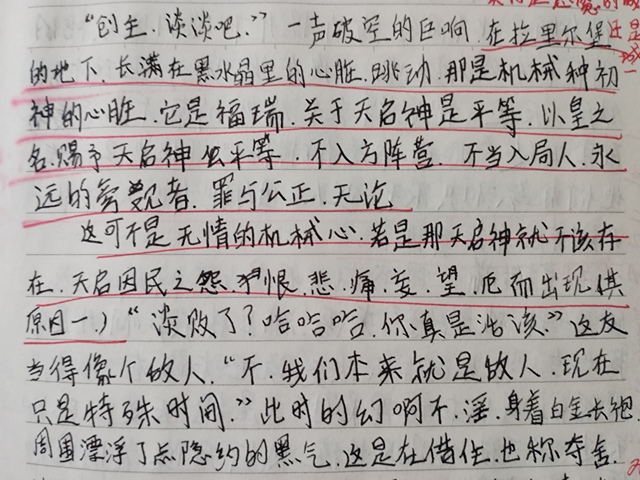 “创主.谈谈吧.”一声破空的巨响.在拉里尔堡
的地下.长满在黑水晶里的心脏.跳动.那是机械种初
神的心脏.它是福瑞.关于天启神是平等.以皇之
名.赐予天启神公平等.不入方阵营.不当入局人.永
远的旁观者.罪与公正.无论
这可不是无情的机械心.若是那天启神就不该存
在.天启因民之怨.恨.悲.痛.妄.望.厄而出现(其
原因一.)“淡败了?哈哈哈.你真是活该.”这友
当得像个敌人.“不.我们本来就是敌人.现在
只是特殊时间.”此时的幻啊不.遥.身着白金长袍.
周围漂浮了点隐约的黑气.这是在借住.也称夺舍.